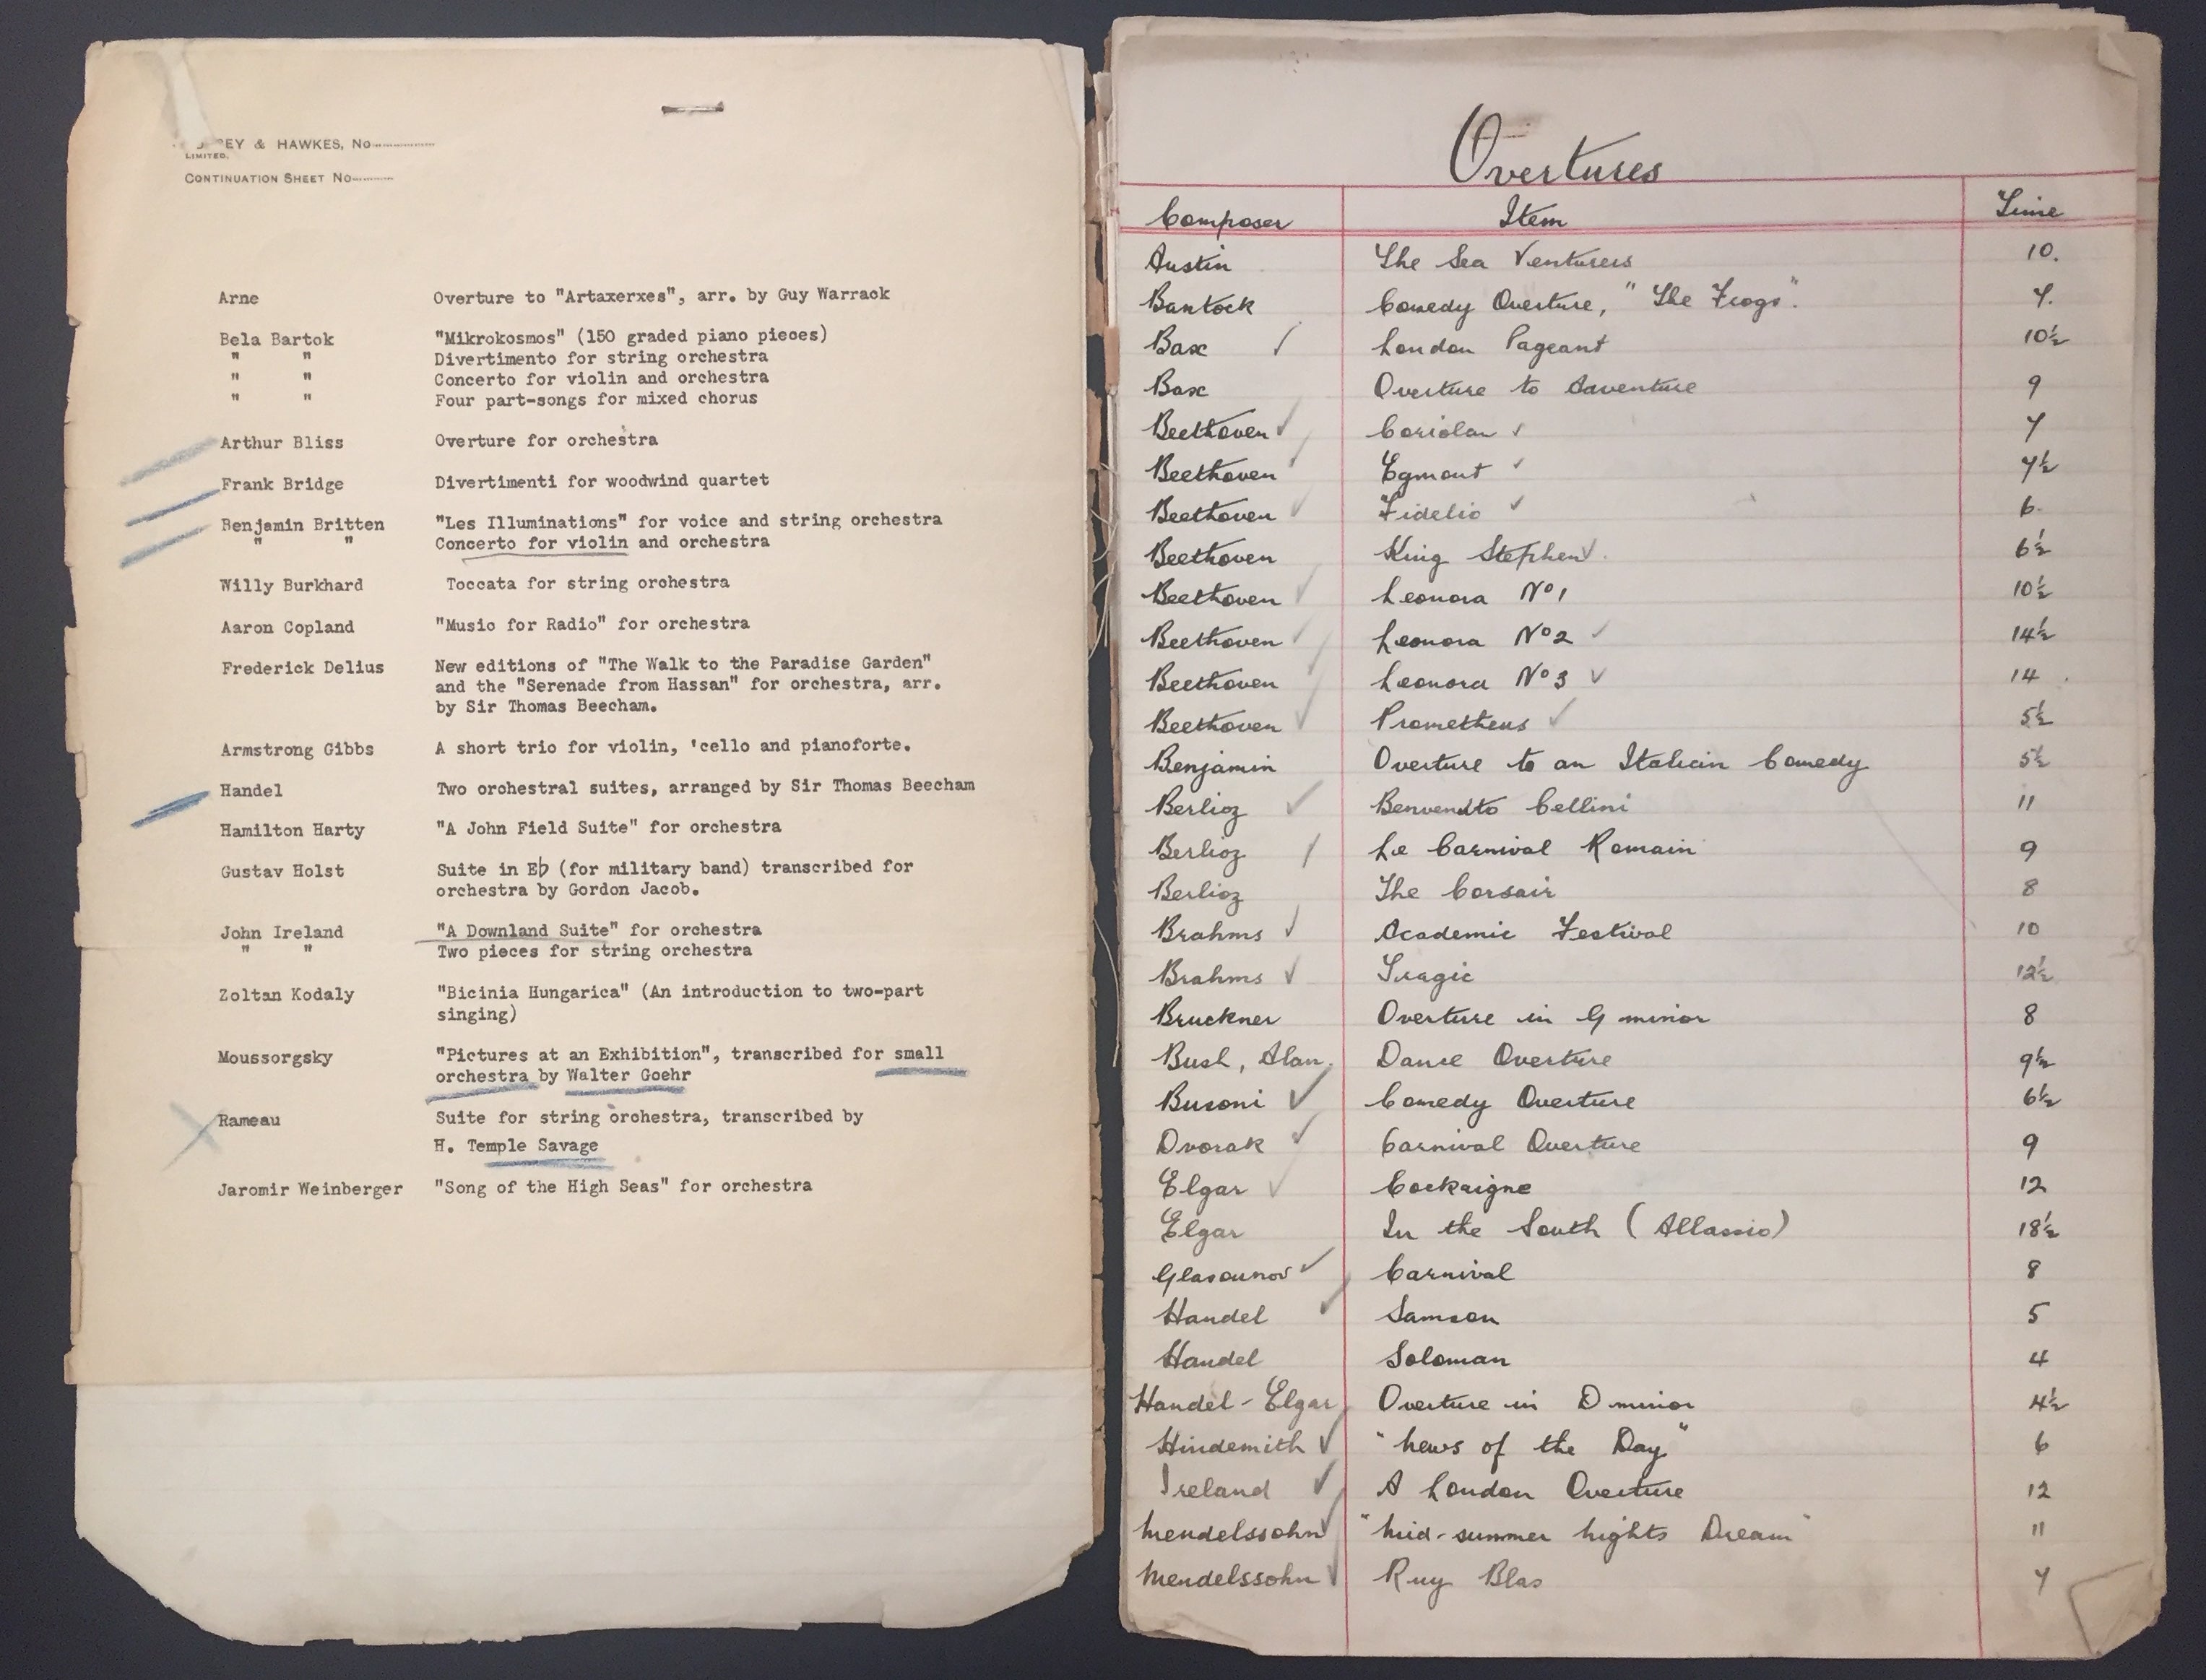 EY & HAWKES, No
LIMITED.
CONTINUATION SHEET No
Arne Overture to "Artaxerxes", arr. by Guy Warrack
Bela Bartok "Mikrokosmos" (150 graded piano pieces)
" " Divertimento for string orchestra
" " Concerto for violin and orchestra
" " Four part-songs for mixed chorus
Arthur Bliss Overture for orchestra
Frank Bridge Divertimenti for woodwind quartet
Benjamin Britten "Les Illuminations" for voice and string orchestra
" " Concerto for violin and orchestra
Willy Burkhard Toccata for string orchestra
Aaron Copland "Music for Radio" for orchestra
Frederick Delius New editions of "The Walk to the Paradise Garden"
and the "Serenade from Hassan" for orchestra, arr.
by Sir Thomas Beecham.
Armstrong Gibbs A short trio for violin, 'cello and pianoforte.
Handel Two orchestral suites, arranged by Sir Thomas Beecham
Hamilton Harty "A John Field Suite" for orchestra
Gustav Holst Suite in E♭ (for military band) transcribed for
orchestra by Gordon Jacob.
John Ireland "A Downland Suite" for orchestra
" " Two pieces for string orchestra
Zoltan Kodaly "Bicinia Hungarica" (An introduction to two-part
singing)
Moussorgsky "Pictures at an Exhibition", transcribed for small
orchestra by Walter Goehr
Rameau Suite for string orchestra, transcribed by
H. Temple Savage
Jaromir Weinberger "Song of the High Seas" for orchestra
Overtures
Composer Item Time
Austin The Sea Venturers 10.
Bantock Comedy Overture, "The Frogs". 7.
Bax ✓ London Pageant 10½
Bax Overture to Adventure 9
Beethoven ✓ Coriolan ✓ 7
Beethoven ✓ Egmont ✓ 7½
Beethoven ✓ Fidelio ✓ 6.
Beethoven King Stephen ✓. 6½
Beethoven ✓ Leonora Nº1 10½
Beethoven ✓ Leonora Nº2 ✓ 14½
Beethoven ✓ Leonora Nº3 ✓ 14
Beethoven ✓ Prometheus ✓ 5½
Benjamin Overture to an Italian Comedy 5½
Berlioz ✓ Benvendto Cellini 11
Berlioz ✓ Le Carnival Romain 9
Berlioz The Corsair 8
Brahms ✓ Academic Festival 10
Brahms ✓ Tragic 12½
Bruckner Overture in G minor 8
Bush, Alan. Dance Overture 9½
Busoni ✓ Comedy Overture 6½
Dvorak ✓ Carnival Overture 9
Elgar ✓ Cockaigne 12
Elgar In the South (Allassio) 18½
Glasounov ✓ Carnival 8
Handel ✓ Samson 5
Handel Soloman 4
Handel-Elgar Overture in D minor 4½
Hindemith ✓ "News of the Day" 6
Ireland ✓ A London Overture 12
Mendelssohn ✓ "Mid-summer Nights Dream" 11
Mendelssohn ✓ Ruy Blas 7